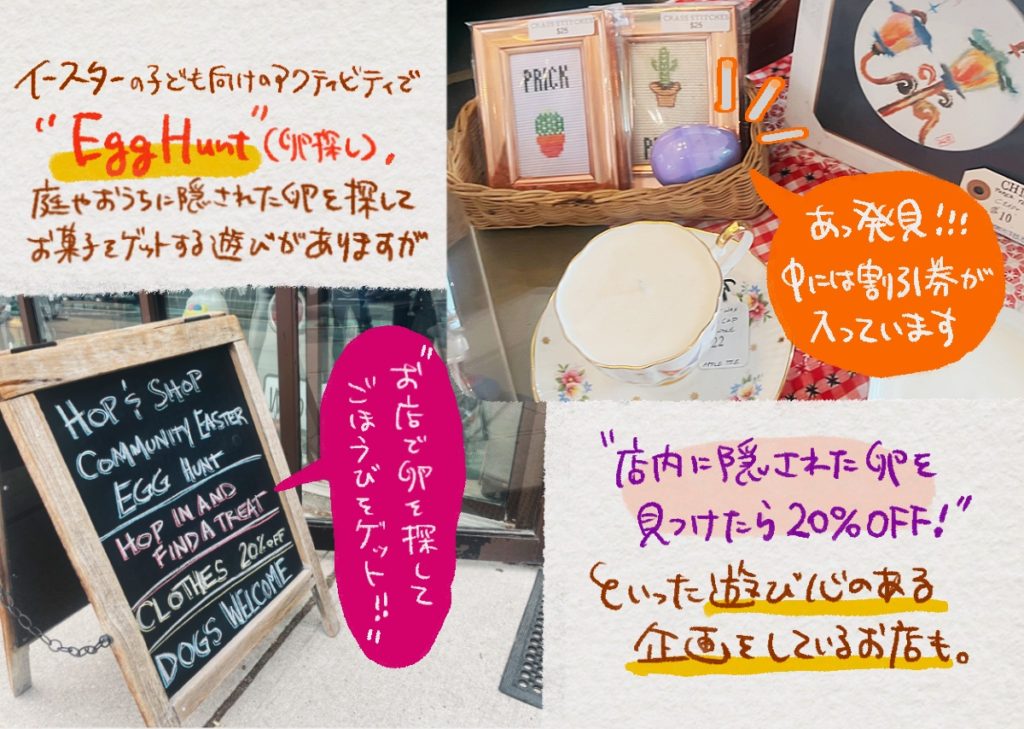 イースターの子ども向けのアクティビティで
"Egg Hunt"(卵探し),
庭やおうちに隠された卵を探して
お菓子をゲットする遊びがありますが
CRASS STITCHES
$25
CRASS STITCHES
$25
PRICK
あっ発見!!!
中には割引券が
入っています
22
$10
HOP & SHOP
COMMUNITY EASTER
EGG HUNT
HOP IN AND
FIND A TREAT
CLOTHES 20% OFF
DOGS WELCOME
"お店で卵を探して
ごほうびをゲット!!"
"店内に隠された卵を
見つけたら20%OFF!"
といった遊び心のある
企画をしているお店も。